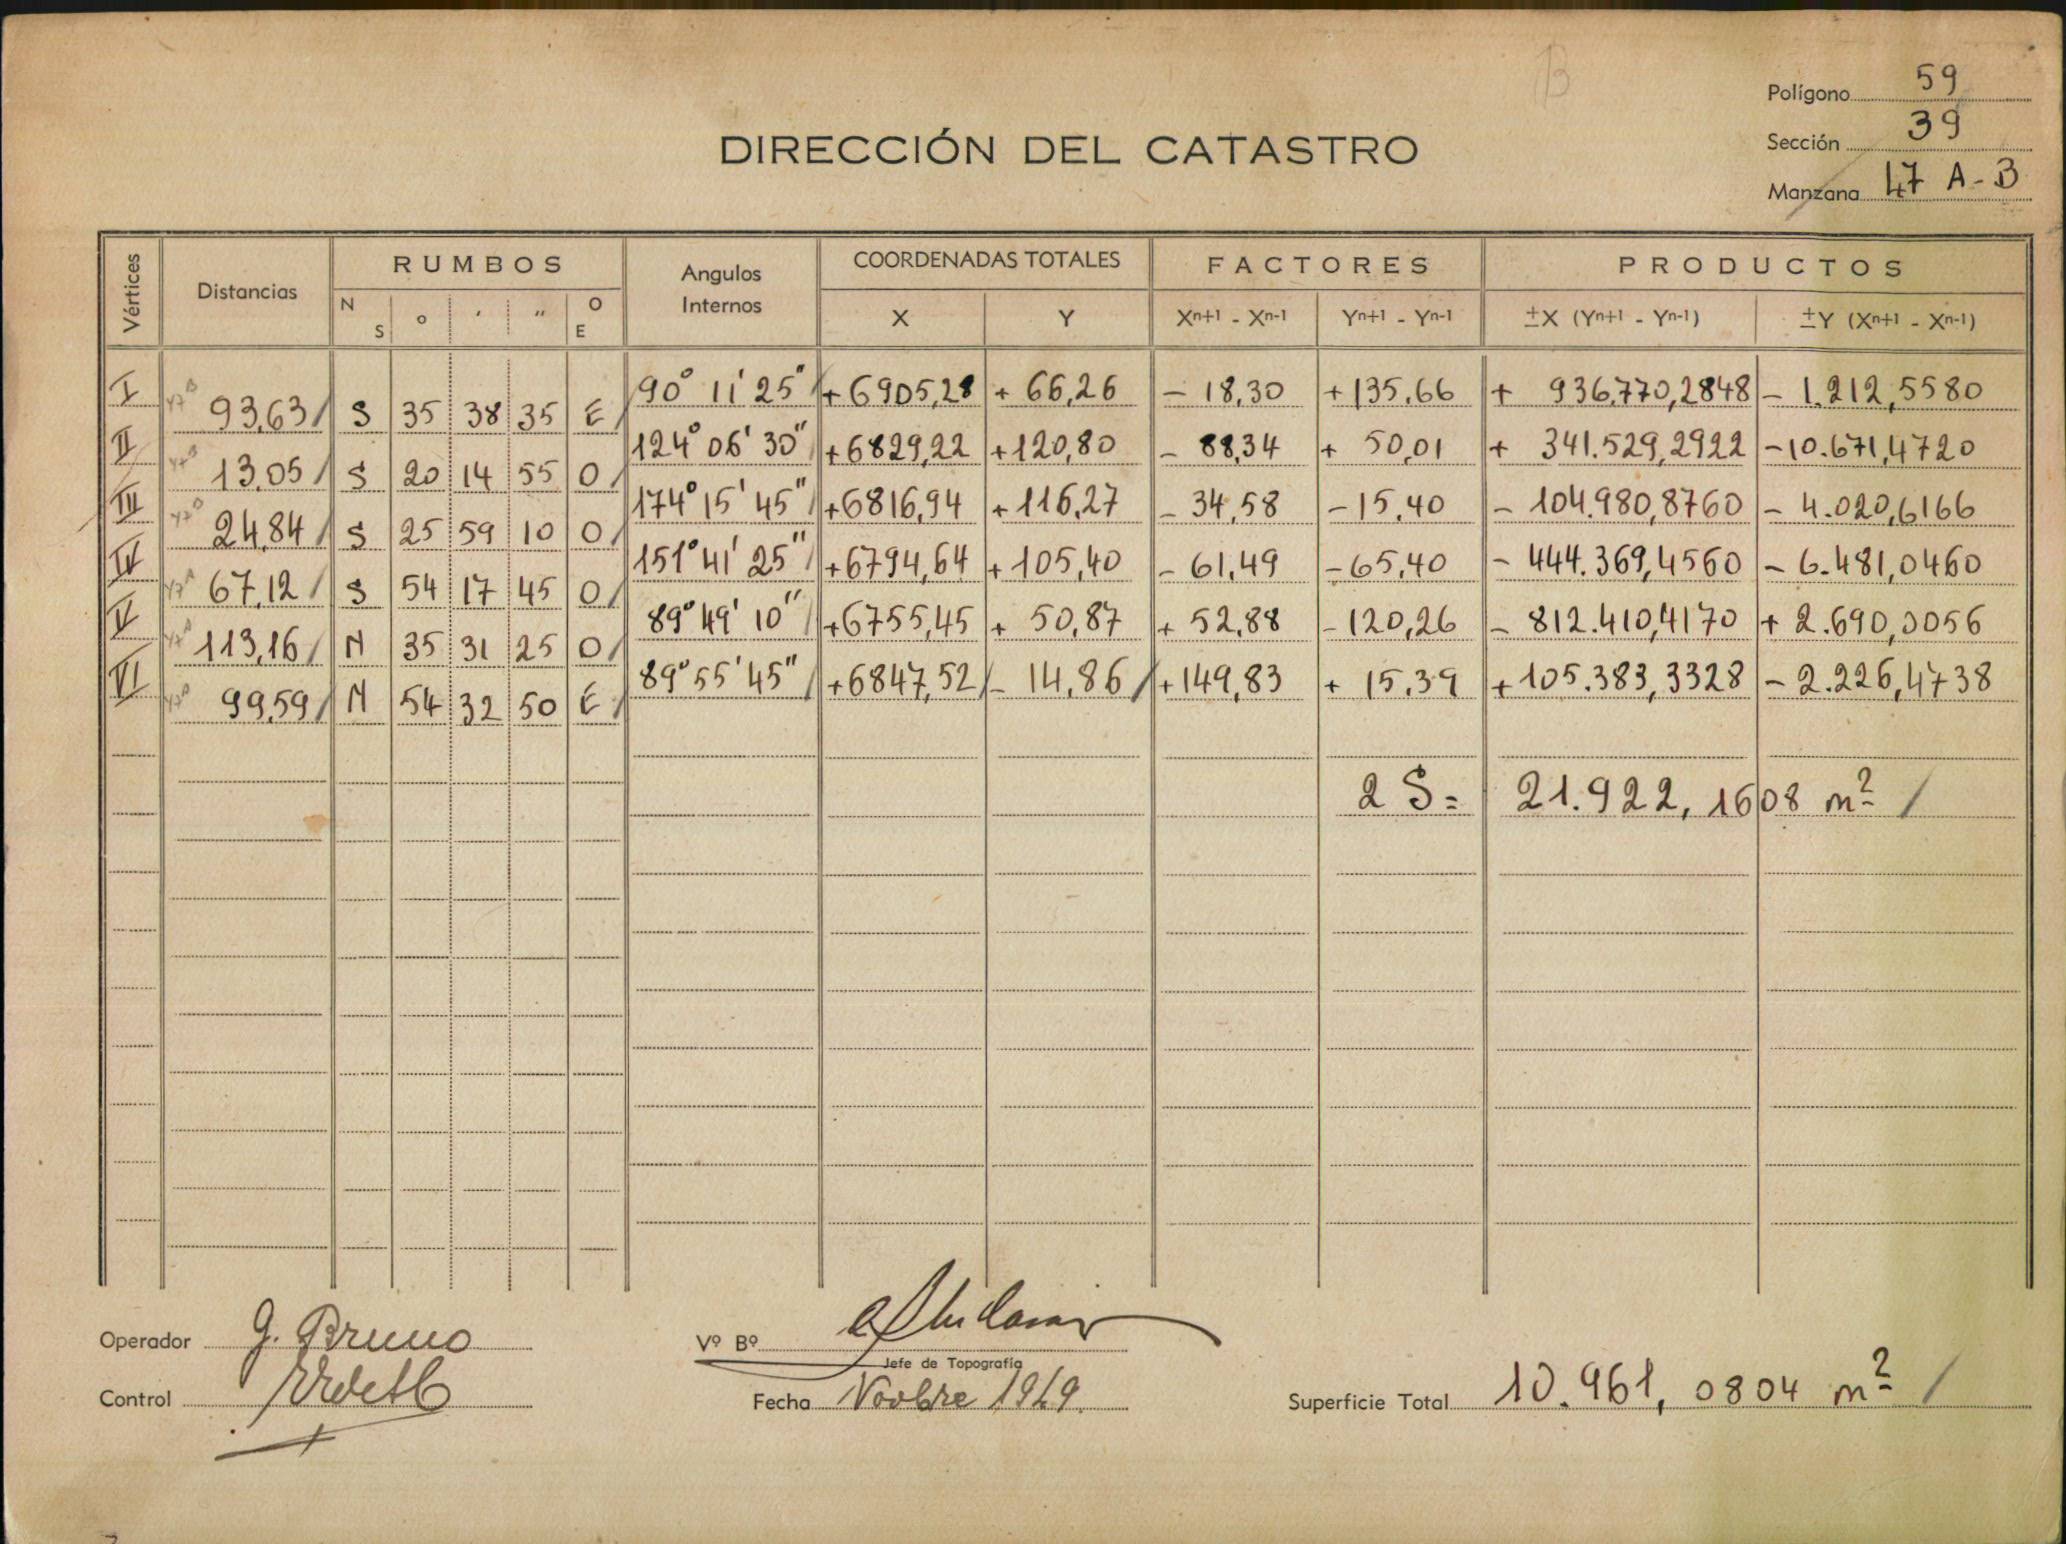 Polígono 59
DIRECCIÓN DEL CATASTRO
Sección 39
Manzana 47 A-B
Vértices Distancias RUMBOS Angulos Internos COORDENADAS TOTALES FACTORES PRODUCTOS
N S o ' " O E X Y Xn+1 - Xn-1 Yn+1 - Yn-1 ±X (Yn+1 - Yn-1) ±Y (Xn+1 - Xn-1)
I 90° 11' 25" +6905,28 + 66,26 - 18,30 +135,66 + 936.770,2848 - 1.212,5580
93,63 S 35 38 35 E
II 124° 06' 30" +6829,22 +120,80 - 88,34 + 50,01 + 341.529,2922 -10.671,4720
13,05 S 20 14 55 O
III 174° 15' 45" +6816,94 + 116,27 - 34,58 -15,40 - 104.980,8760 - 4.020,6166
24,84 S 25 59 10 O
IV 151° 41' 25" +6794,64 + 105,40 - 61,49 -65,40 - 444.369,4560 - 6.481,0460
67,12 S 54 17 45 O
V 89° 49' 10" +6755,45 + 50,87 + 52,88 -120,26 - 812.410,4170 + 2.690,0056
113,16 N 35 31 25 O
VI 89° 55' 45" +6847,52 - 14,86 +149,83 + 15,39 +105.383,3328 - 2.226,4738
99,59 N 54 32 50 E
2 S = 21.922,1608 m²
Operador G. Bruno
Vº Bº
Jefe de Topografía
Control
Fecha Novbre 1949
Superficie Total 10.961,0804 m²